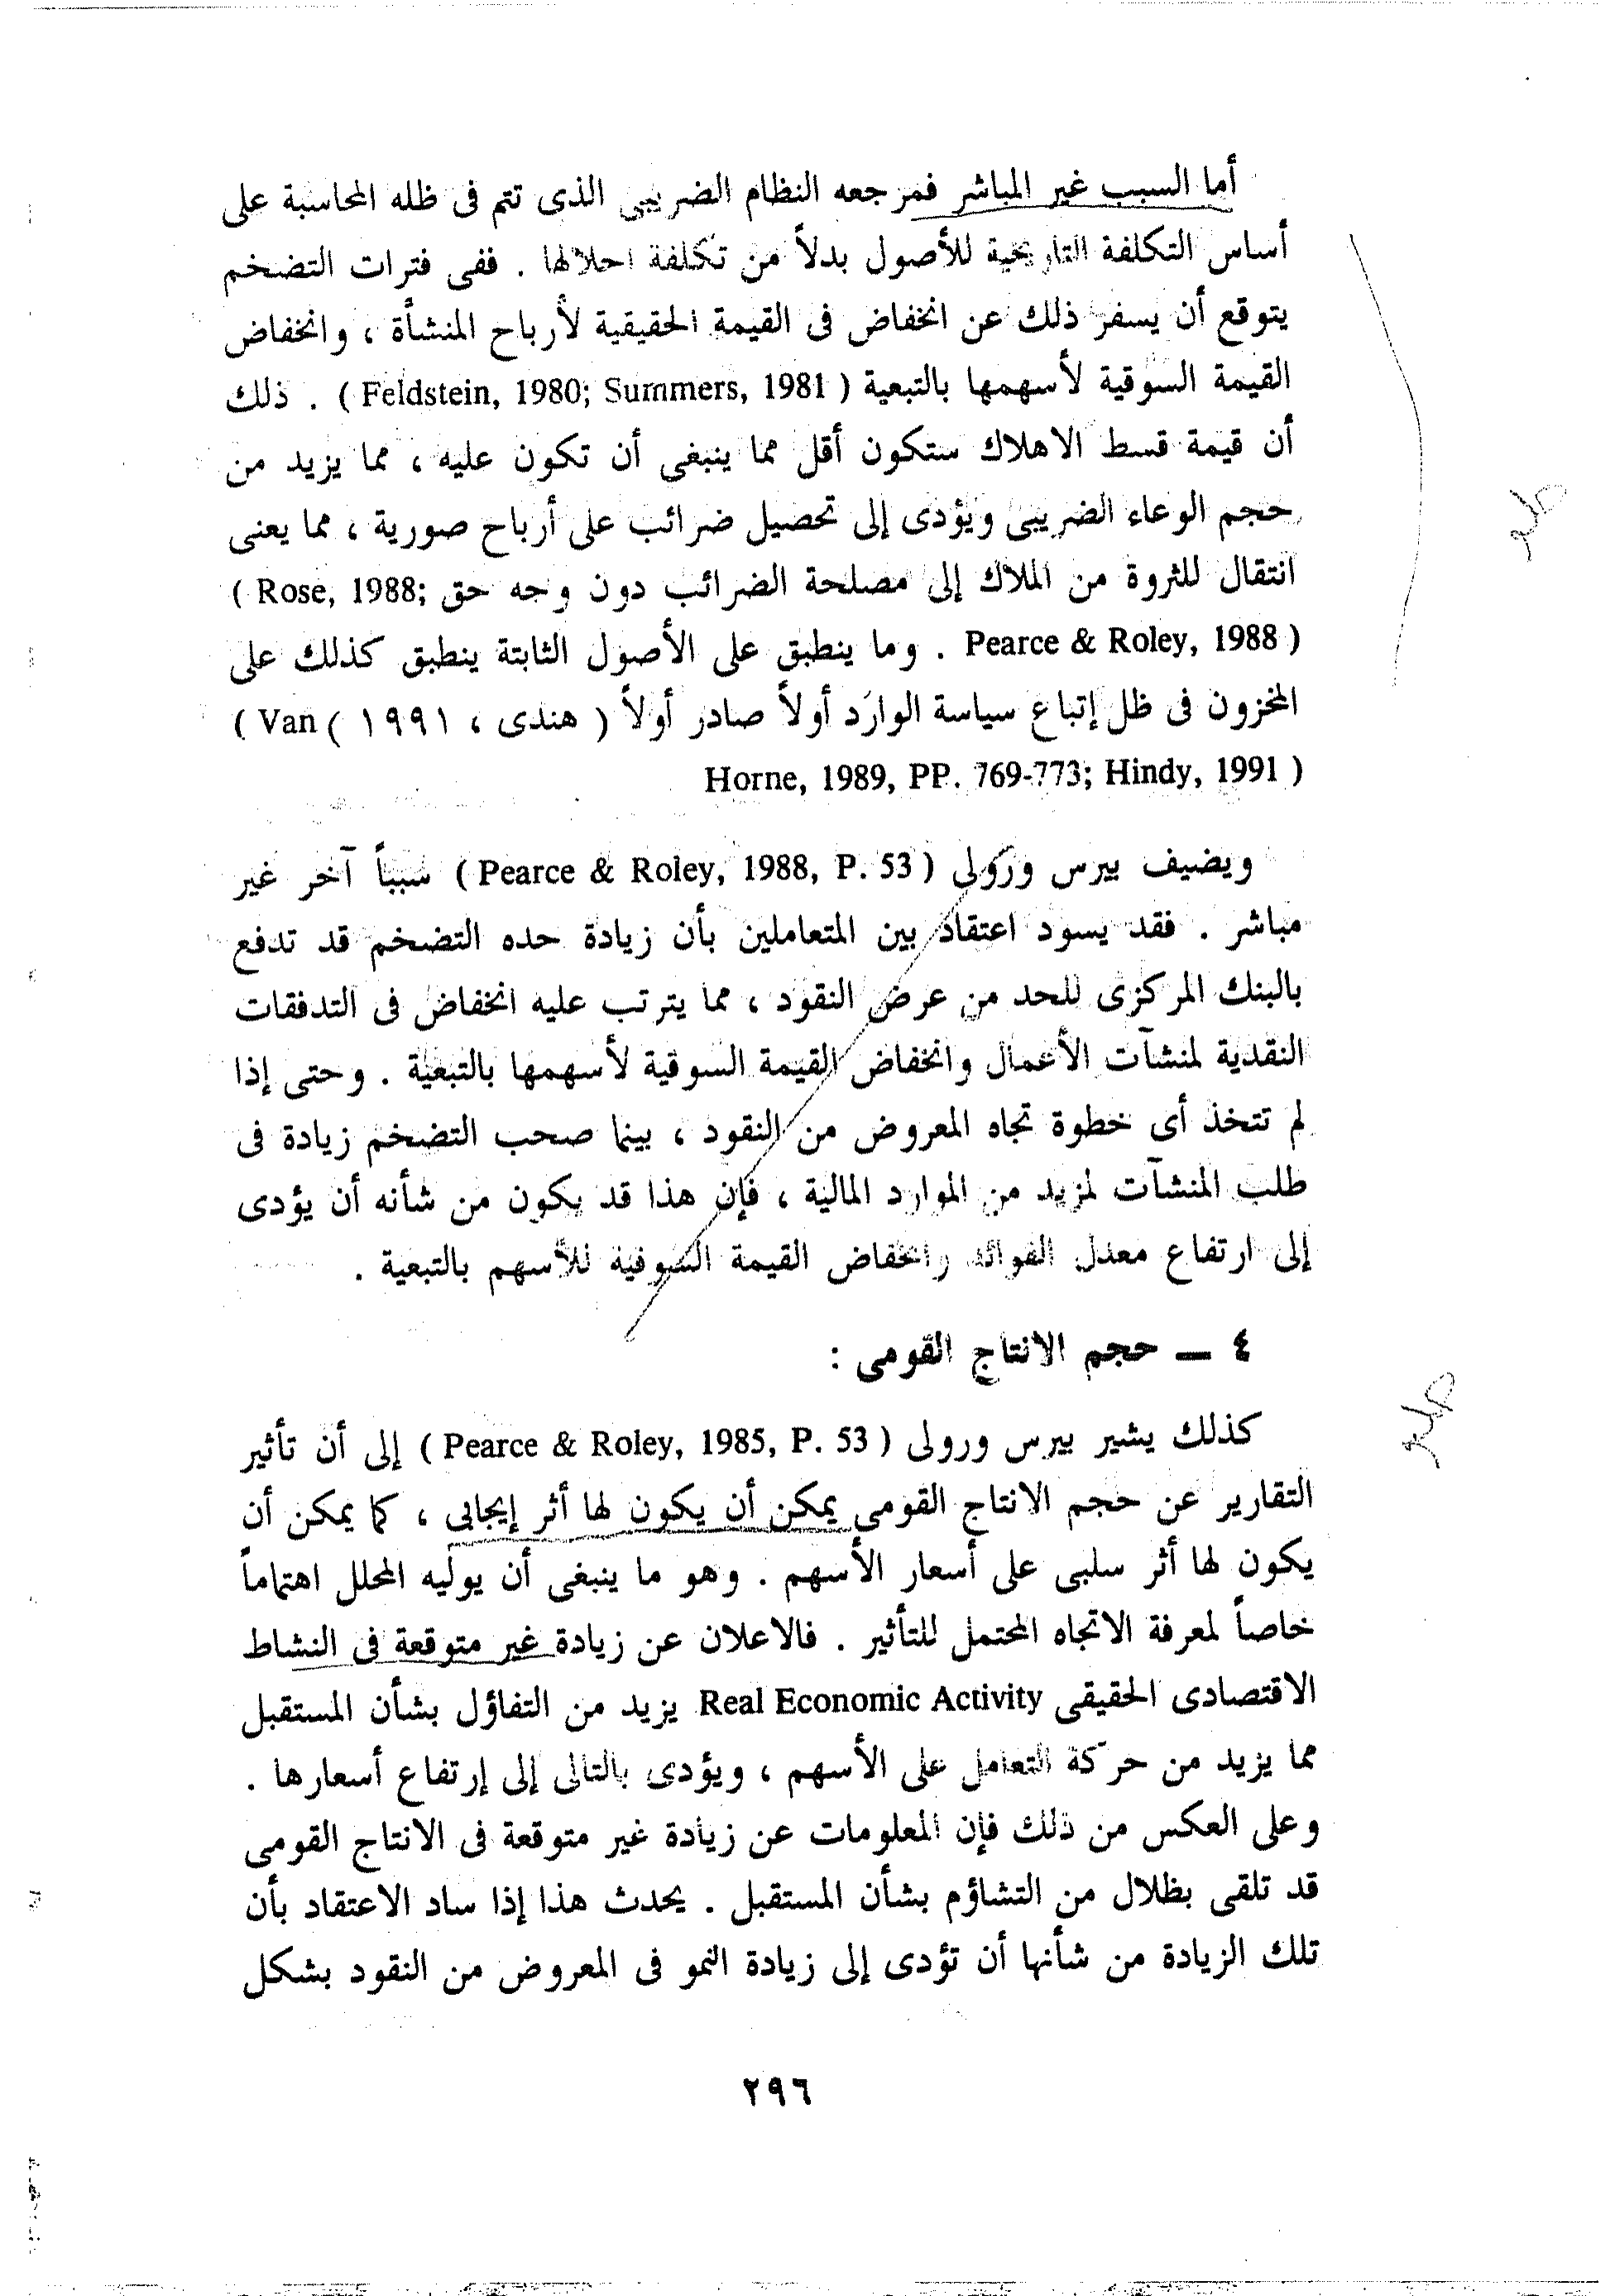 أما السبب غير المباشر فمرجعه النظام الضريبى الذى تتم فى ظله المحاسبة على
أساس التكلفة التاريخية للأصول بدلاً من تكلفة احلالها . ففى فترات التضخم
يتوقع أن يسفر ذلك عن انخفاض فى القيمة الحقيقية لأرباح المنشأة ، وانخفاض
القيمة السوقية لأسهمها بالتبعية ( Feldstein, 1980; Summers, 1981 ) . ذلك
أن قيمة قسط الاهلاك ستكون أقل مما ينبغى أن تكون عليه ، مما يزيد من
حجم الوعاء الضريبى ويؤدى إلى تحصيل ضرائب على أرباح صورية ، مما يعنى
انتقال للثروة من الملاك إلى مصلحة الضرائب دون وجه حق ( Rose, 1988;
Pearce & Roley, 1988 ) . وما ينطبق على الأصول الثابتة ينطبق كذلك على
المخزون فى ظل إتباع سياسة الوارد أولاً صادر أولاً ( هندى ، ١٩٩١ ) ( Van
Horne, 1989, PP. 769-773; Hindy, 1991 )
ويضيف بيرس ورولى ( Pearce & Roley, 1988, P. 53 ) سبباً آخر غير
مباشر . فقد يسود اعتقاد بين المتعاملين بأن زيادة حده التضخم قد تدفع
بالبنك المركزى للحد من عرض النقود ، مما يترتب عليه انخفاض فى التدفقات
النقدية لمنشآت الأعمال وانخفاض القيمة السوقية لأسهمها بالتبعية . وحتى إذا
لم تتخذ أى خطوة تجاه المعروض من النقود ، بينما صحب التضخم زيادة فى
طلب المنشآت لمزيد من الموارد المالية ، فإن هذا قد يكون من شأنه أن يؤدى
إلى ارتفاع معدل الفوائد وانخفاض القيمة السوقية للأسهم بالتبعية .
٤ — حجم الانتاج القومى :
كذلك يشير بيرس ورولى ( Pearce & Roley, 1985, P. 53 ) إلى أن تأثير
التقارير عن حجم الانتاج القومى يمكن أن يكون لها أثر إيجابى ، كما يمكن أن
يكون لها أثر سلبى على أسعار الأسهم . وهو ما ينبغى أن يوليه المحلل اهتماماً
خاصاً لمعرفة الاتجاه المحتمل للتأثير . فالاعلان عن زيادة غير متوقعة فى النشاط
الاقتصادى الحقيقى Real Economic Activity يزيد من التفاؤل بشأن المستقبل
مما يزيد من حركة التعامل على الأسهم ، ويؤدى بالتالى إلى إرتفاع أسعارها .
وعلى العكس من ذلك فإن المعلومات عن زيادة غير متوقعة فى الانتاج القومى
قد تلقى بظلال من التشاؤم بشأن المستقبل . يحدث هذا إذا ساد الاعتقاد بأن
تلك الزيادة من شأنها أن تؤدى إلى زيادة النمو فى المعروض من النقود بشكل
٢٩٦